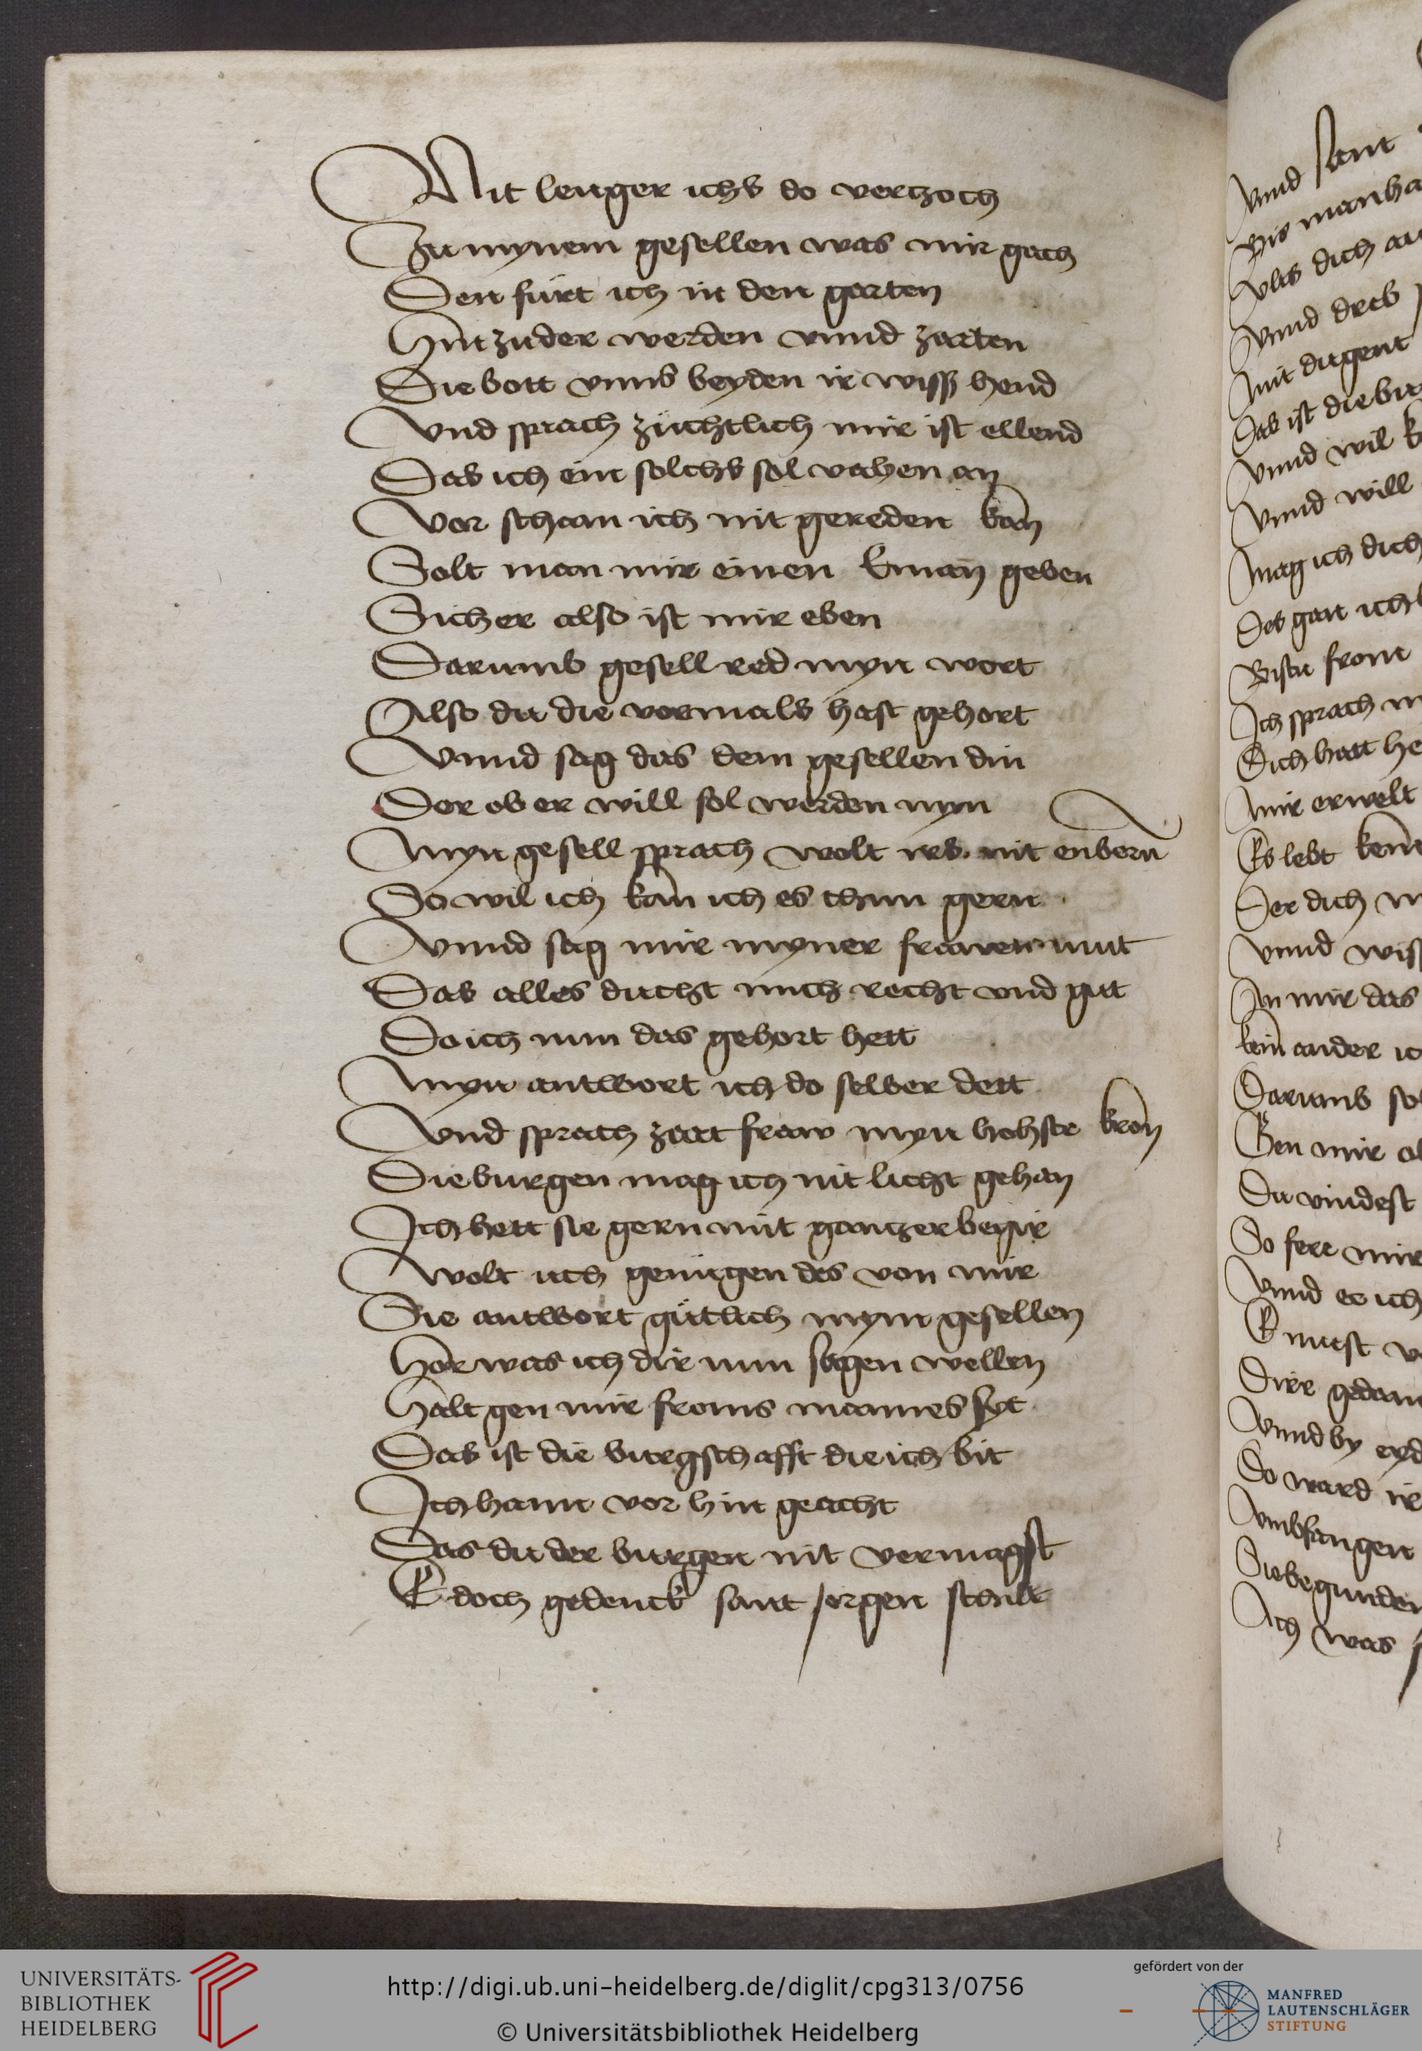 Nit lenger ichs do verzoch
Zu mynem gesellen was mir gach
Den furt ich in den garten
Hin zu der werden vnnd zarten
Die bott vnns beyden ir wissz hend
Vnd sprach züchtlich mir ist ellend
Das ich ein solchs sol vahen an
Vor scham ich nit gereden kan
Solt man mir einen Eman geben
Sicher also ist mir eben
Darumb gesell red myn wort
Also du die vormals hast gehort
Vnnd sag das dem gesellen din
Der ob er will sol werden myn
Myn gesell sprach wolt irs nit enbern
So wil ich kan ich es thun gern
Vnnd sag mir myner frawen mut
Das alles ducht mich recht vnd gut
Do ich nun das gehort hett
Myn antwort ich do selber dett
Vnd sprach zart fraw myn hohste kron
Die burgen mag ich nit licht gehan
Ich hett sie gern mit gantzer begir
Wolt uch genugen des von mir
Sie antwort gütlich mym gesellen
Hor was ich dir nun sagen wellen
Halt gen mir froms mannes syt
Das ist die burgschafft die ich bit
Ich hann vor hin geacht
Das du der burgen nit vermagst
E doch gedenck sant jorgen schilt
Vnnd sant
Bis manha
Als dich
Vnnd dreb
Mit dugent
Das ist die bu
Vnnd wil
Vnnd will
Mag ich dich
Des gan ich
Bistu from
Ich sprach
Dich hatt he
Mir erwelt
Es lebt
Der dich
Vnnd wis
An mir das
kein ander
Darumb so
Gen mir
Du vindest
So ferr mir
Vnnd ee ich
E must
Dire
Vnnd by eyd
Do ward ir
Vmbfangen
Sie begunden
Ich was
UNIVERSITÄTS-
BIBLIOTHEK
HEIDELBERG
http://digi.ub.uni-heidelberg.de/diglit/cpg313/0756
© Universitätsbibliothek Heidelberg
gefördert von der
MANFRED
LAUTENSCHLÄGER
STIFTUNG